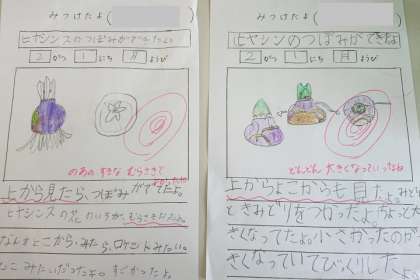 みつけたよ(
ヒヤシンスのつぼみが
2がつ1にち月ようび
のあの すきな むらさきで
上から見たら、つぼみが
ヒヤシンスの花のいろが、むらさき
なんまとこから、みたら、ロケットみたい。
みたいだった すごかったよ。
みつけたよ(
ヒヤシンのつぼみができね
2がつ1にち月ようび
どんどん 大きくなっていったね
上からよこからも見たよ。みど
ときみどりをつかったよ。ちょっと大
きくなってたよ。小さかったのが
きくなっていてびっくりした